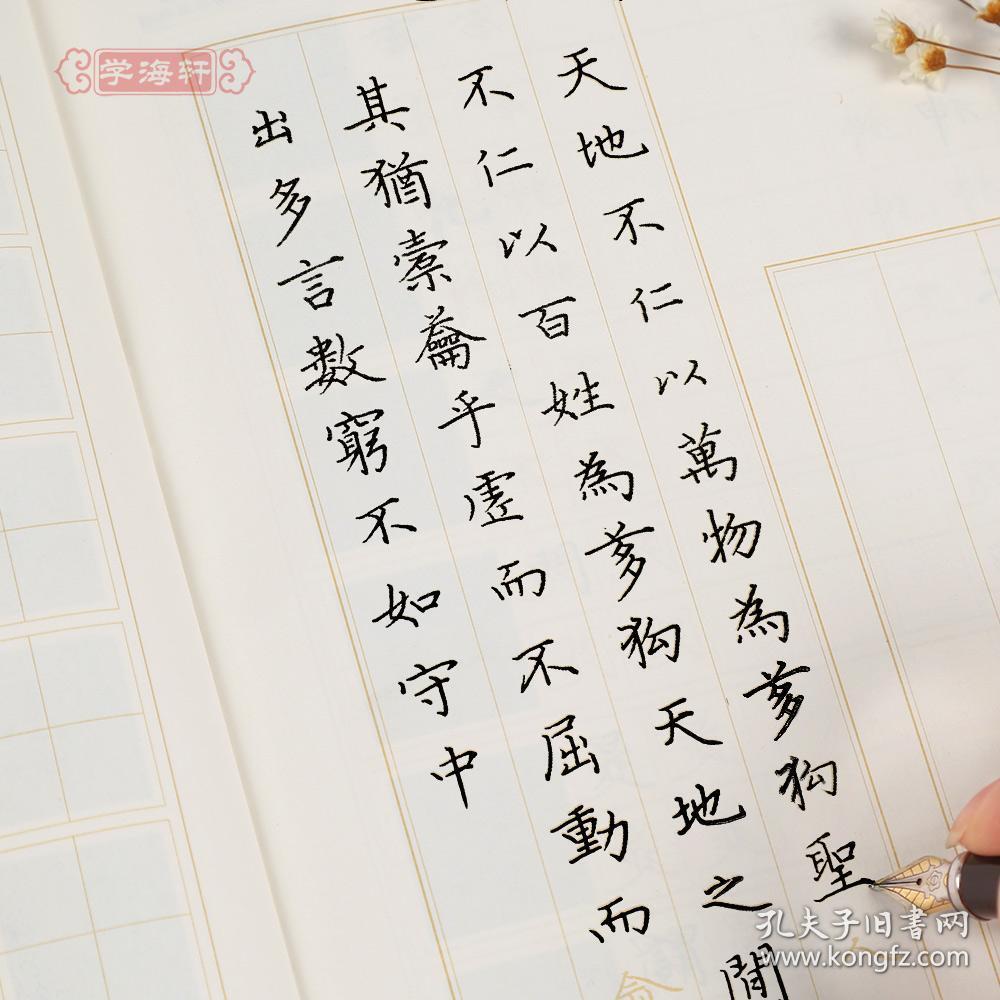 天地不仁以萬物為芻狗聖
不仁以百姓為芻狗天地之間
其猶橐籥乎虛而不屈動而
出多言數窮不如守中
学海轩
孔夫子旧书网
www.kongfz.com